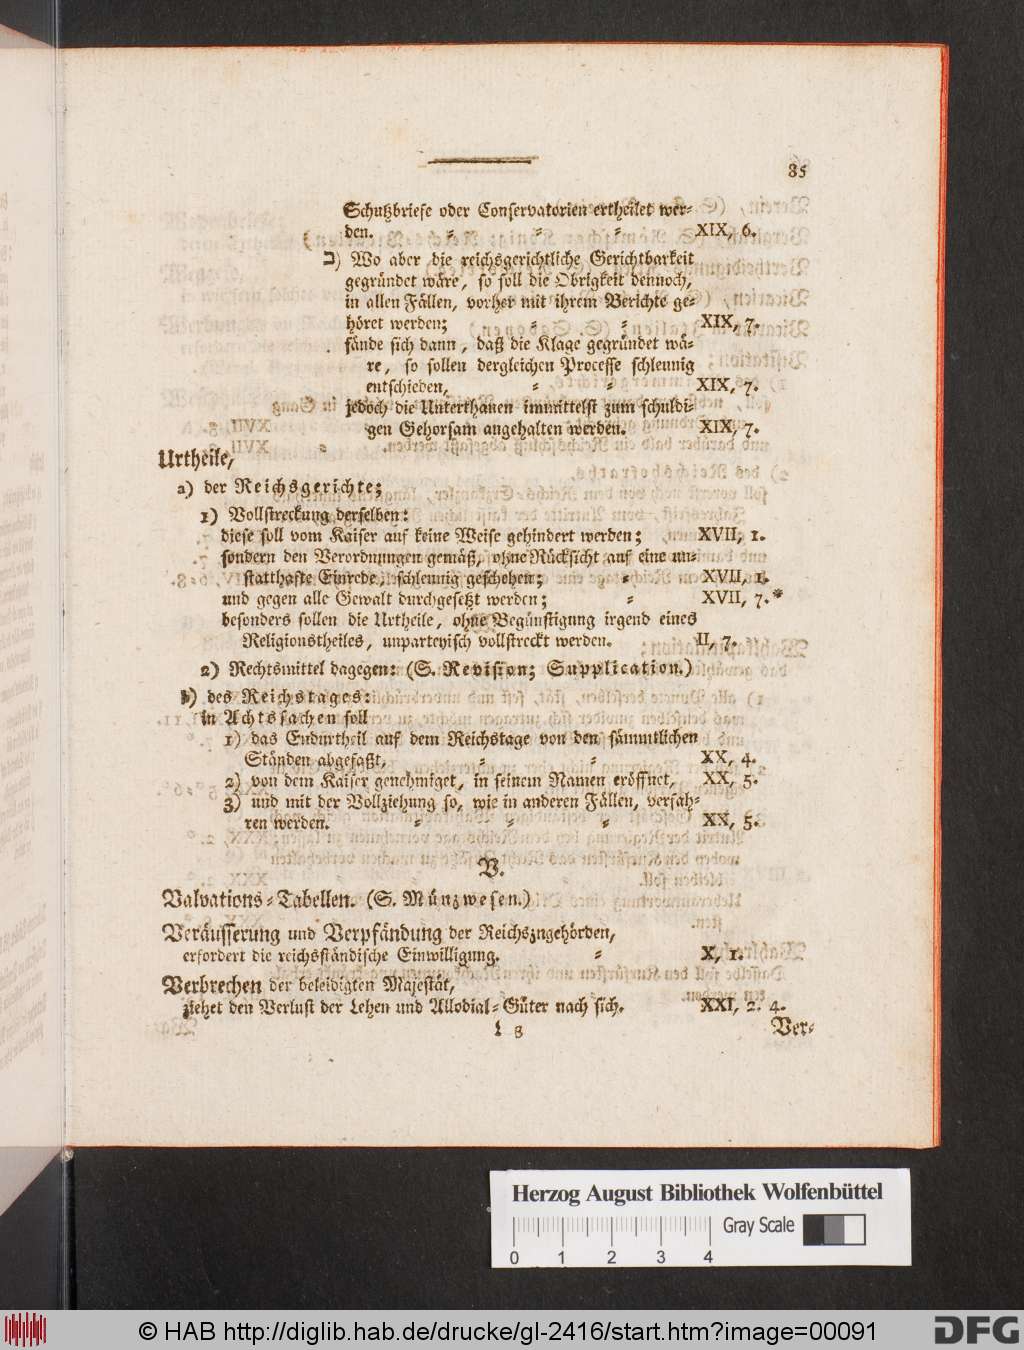 85
Schutzbriefe oder Conservatorien ertheilet wer-
den. = = = XIX, 6.
ב) Wo aber die reichsgerichtliche Gerichtbarkeit
gegründet wäre, so soll die Obrigkeit dennoch,
in allen Fällen, vorher mit ihrem Berichte ge-
höret werden; = = XIX, 7.
fände sich dann, daß die Klage gegründet wä-
re, so sollen dergleichen Processe schleunig
entschieden, = = XIX, 7.
jedoch die Unterthanen immittelst zum schuldi-
gen Gehorsam angehalten werden. XIX, 7.
Urtheile,
a) der Reichsgerichte;
1) Vollstreckung derselben:
diese soll vom Kaiser auf keine Weise gehindert werden; XVII, 1.
sondern den Verordnungen gemäß, ohne Rücksicht auf eine un-
statthafte Einrede, schleunig geschehen; = XVII, 1.
und gegen alle Gewalt durchgesetzt werden; = XVII, 7.*
besonders sollen die Urtheile, ohne Begünstigung irgend eines
Religionstheiles, unparteyisch vollstreckt werden. II, 7.
2) Rechtsmittel dagegen: (S. Revision; Supplication.)
b) des Reichstages:
in Achtssachen soll
1) das Endurtheil auf dem Reichstage von den sämmtlichen
Ständen abgefaßt, = = XX, 4.
2) von dem Kaiser genehmiget, in seinem Namen eröffnet, XX, 5.
3) und mit der Vollziehung so, wie in anderen Fällen, verfah-
ren werden. = = = XX, 5.
V.
Valvations-Tabellen. (S. Münzwesen.)
Veräusserung und Verpfändung der Reichszugehörden,
erfordert die reichsständische Einwilligung. = X, 1.
Verbrechen der beleidigten Majestät,
ziehet den Verlust der Lehen und Allodial-Güter nach sich. XXI, 2. 4.
L 3 Ver-
Herzog August Bibliothek Wolfenbüttel
Gray Scale
0 1 2 3 4
© HAB http://diglib.hab.de/drucke/gl-2416/start.htm?image=00091
DFG